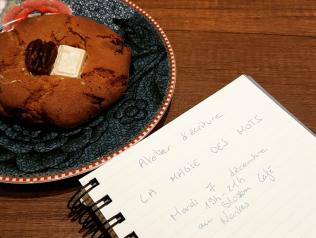 Atelier d'écriture
LA MAGIE DES MOTS
Mardi 7 décembre
19h-21h
au Blossom Café
Nantes